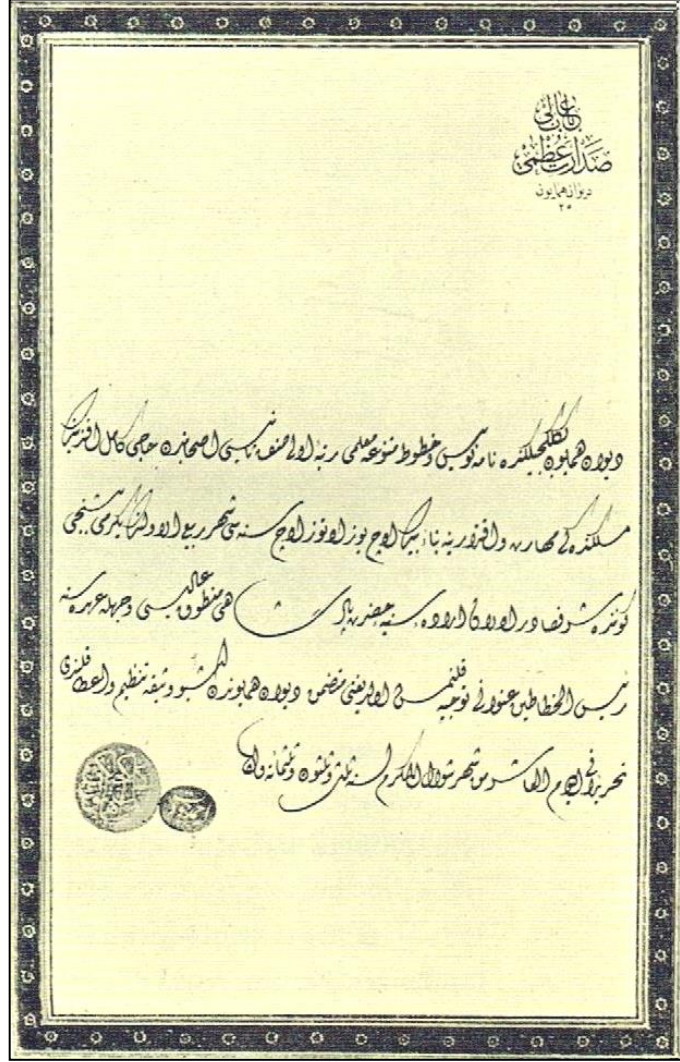 باب عالی
صدارت عظمی
دیوان همایون
٢٥
دیوان همایون نامه‌نویس و خطوط متنوعه معلمی رتبهٔ اولی صنف ثانیسی اصحابندن حاجی کامل افندینك
مسلکنده‌کی مهارت و اقتدارینه بناءً بیك اوچ یوز اوتوز اوچ سنه‌سی شهر ربیع الاولنك یکرمی بشنجی
کوننده شرفصادر اولان ارادهٔ سنیهٔ حضرت پادشاهی منطوق عالیسی وجهله عهده‌سنه
رئیس الخطاطین عنوانی توجیه قلنمش اولدیغنی متضمن دیوان همایوندن اشبو وثیقه تنظیم و اعطا قلندی
تحریراً فی الیوم العاشر من شهر شوال المکرم لسنه ثلث و ثلثون و ثلثمائه و الف